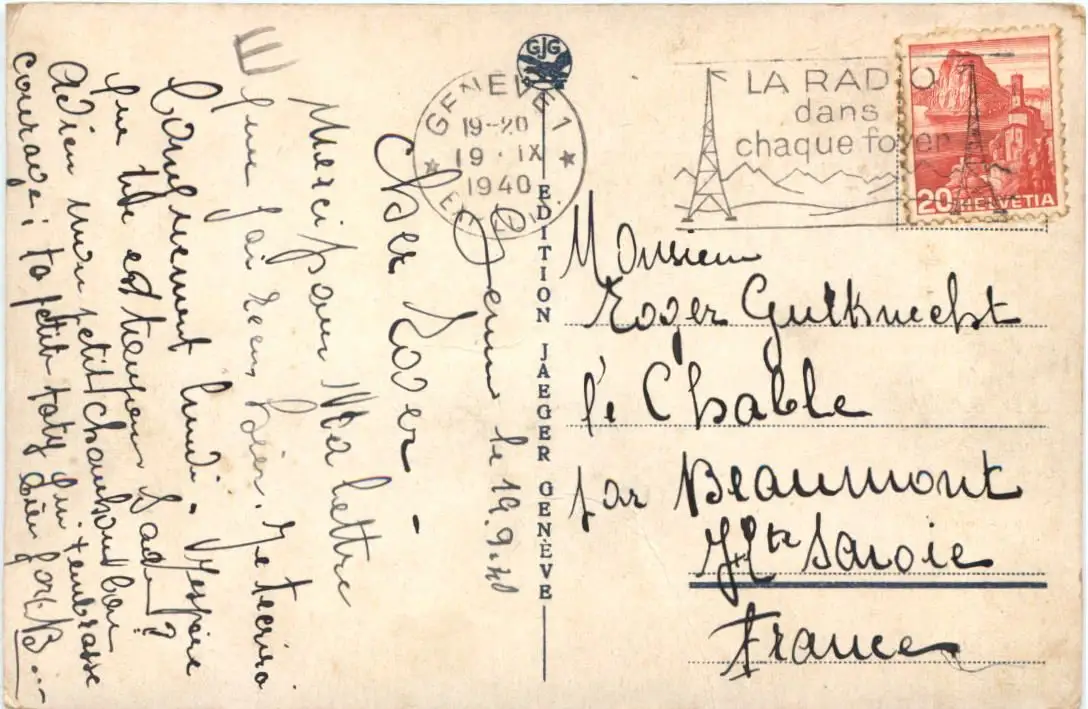 GJG
GENÈVE 1
19-20
19·IX
1940
LA RADIO
dans
chaque foyer
20 HELVETIA
EDITION JAEGER GENÈVE
Genève le 19.9.40
Cher Roger
Merci pour ta lettre
que j'ai reçu hier. Je t'écrirai
longuement lundi. J'espère
que tu es toujours sage?
Adieu mon petit
courage; ta petite qui t'embrasse
bien fort
Monsieur
Roger Gutknecht
le Chable
par Beaumont
Hte Savoie
France